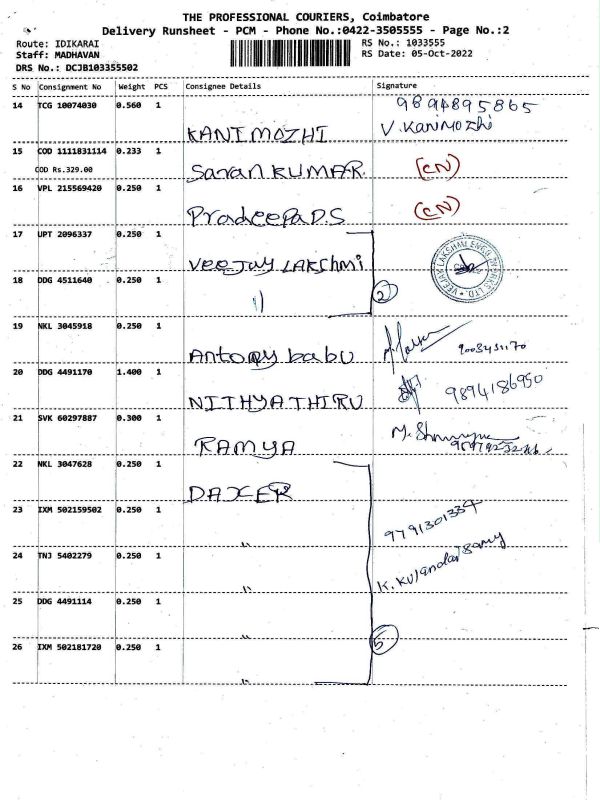 THE PROFESSIONAL COURIERS, Coimbatore
Delivery Runsheet - PCM - Phone No.:0422-3505555 - Page No.:2
Route: IDIKARAI
RS No.: 1033555
Staff: MADHAVAN
RS Date: 05-Oct-2022
DRS No.: DCJB103355502
S No Consignment No Weight PCS Consignee Details Signature
14 TCG 10074030 0.560 1 KANIMOZHI 9894895865
V. KaniMozhi
15 COD 1111831114 0.233 1 Saran KUMAR. (CN)
COD Rs.329.00
16 VPL 215569420 0.250 1 PradeepaD.S (CN)
17 UPT 2096337 0.250 1 Veejay LAKshmi
18 DDG 4511640 0.250 1 11 2
19 NKL 3045918 0.250 1 Antony babu
20 DDG 4491170 1.400 1 NITHYATHIRU 9894186950
21 SVK 60297887 0.300 1 RAMYA
22 NKL 3047628 0.250 1 DAXER
23 IXM 502159502 0.250 1 " 9791301334
24 TNJ 5402279 0.250 1 " K. Kulandaisamy
25 DDG 4491114 0.250 1 "
26 IXM 502181720 0.250 1 " 5